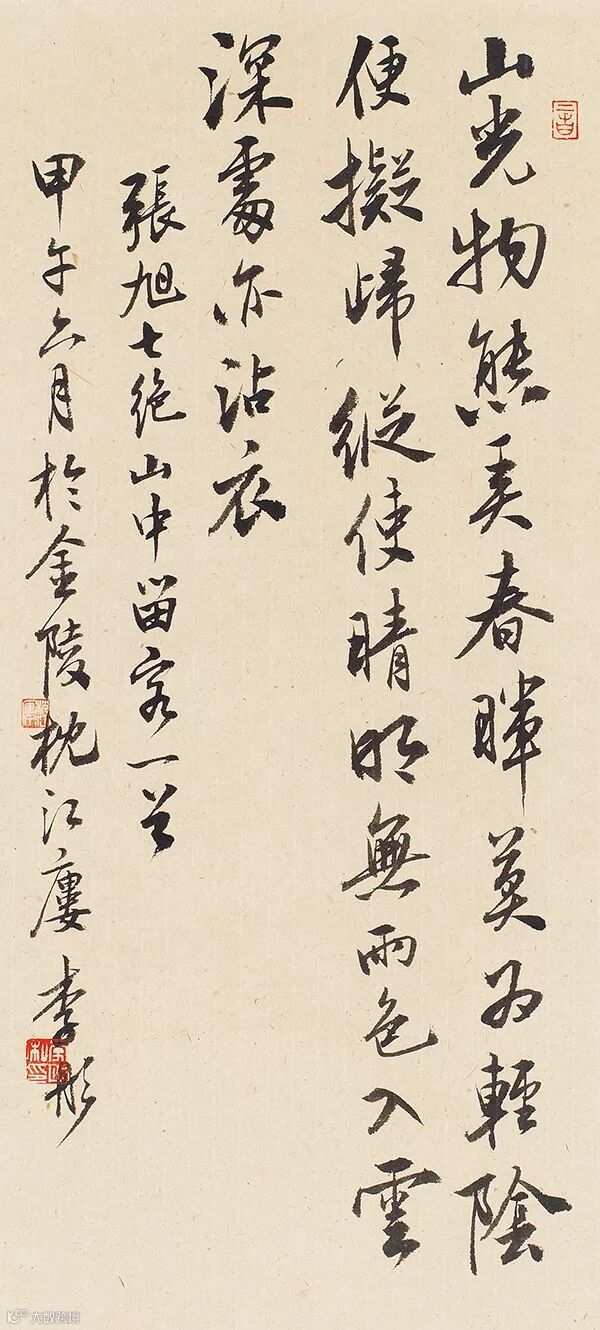 山光物態弄春暉莫為輕陰
便擬歸縱使晴明無雨色入雲
深處亦沾衣
張旭七絕山中留客一首
甲午六月於金陵枕江廔李彤
大数跨境